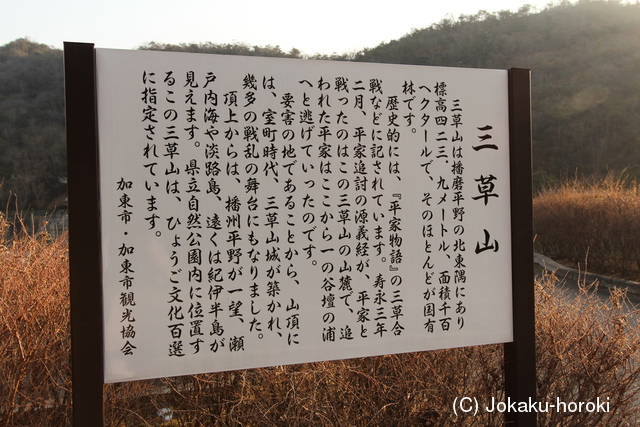 三草山
三草山は播磨平野の北東隅にあり
標高四二三．九メートル、面積千百
ヘクタールで、そのほとんどが国有
林です。
歴史的には、『平家物語』の三草合
戦などに記されています。寿永三年
二月、平家追討の源義経が、平家と
戦ったのはこの三草山の山麓で、追
われた平家はここから一の谷壇の浦
へと逃げていったのです。
要害の地であることから、山頂に
は、室町時代、三草山城が築かれ、
幾多の戦乱の舞台にもなりました。
頂上からは、播州平野が一望、瀬
戸内海や淡路島、遠くは紀伊半島が
見えます。県立自然公園内に位置す
るこの三草山は、ひょうご文化百選
に指定されています。
加東市・加東市観光協会
(C) Jokaku-horoki